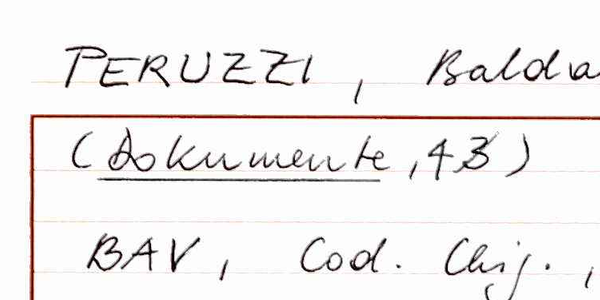 PERUZZI, Balda
(Dokumente, 43)
BAV, Cod. Chij.,